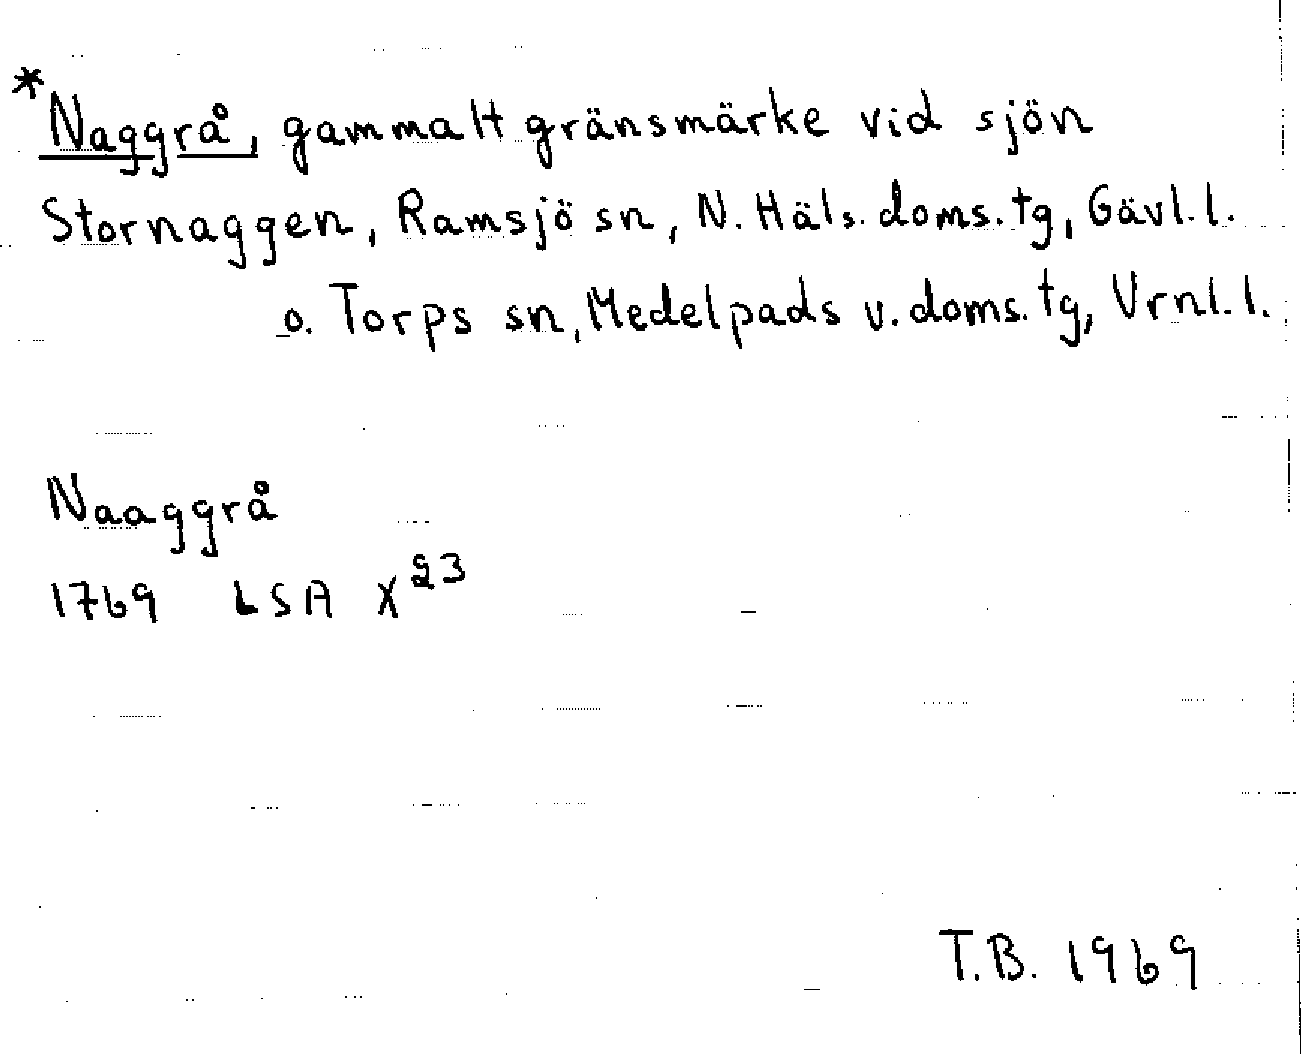 *Naggrå, gammalt gränsmärke vid sjön
Stornaggen, Ramsjö sn, N. Häls. doms. tg, Gävl. l.
o. Torps sn, Medelpads v. doms. tg, Vrnl. l.
Naaggrå
1769 LSA X²³
T.B. 1969